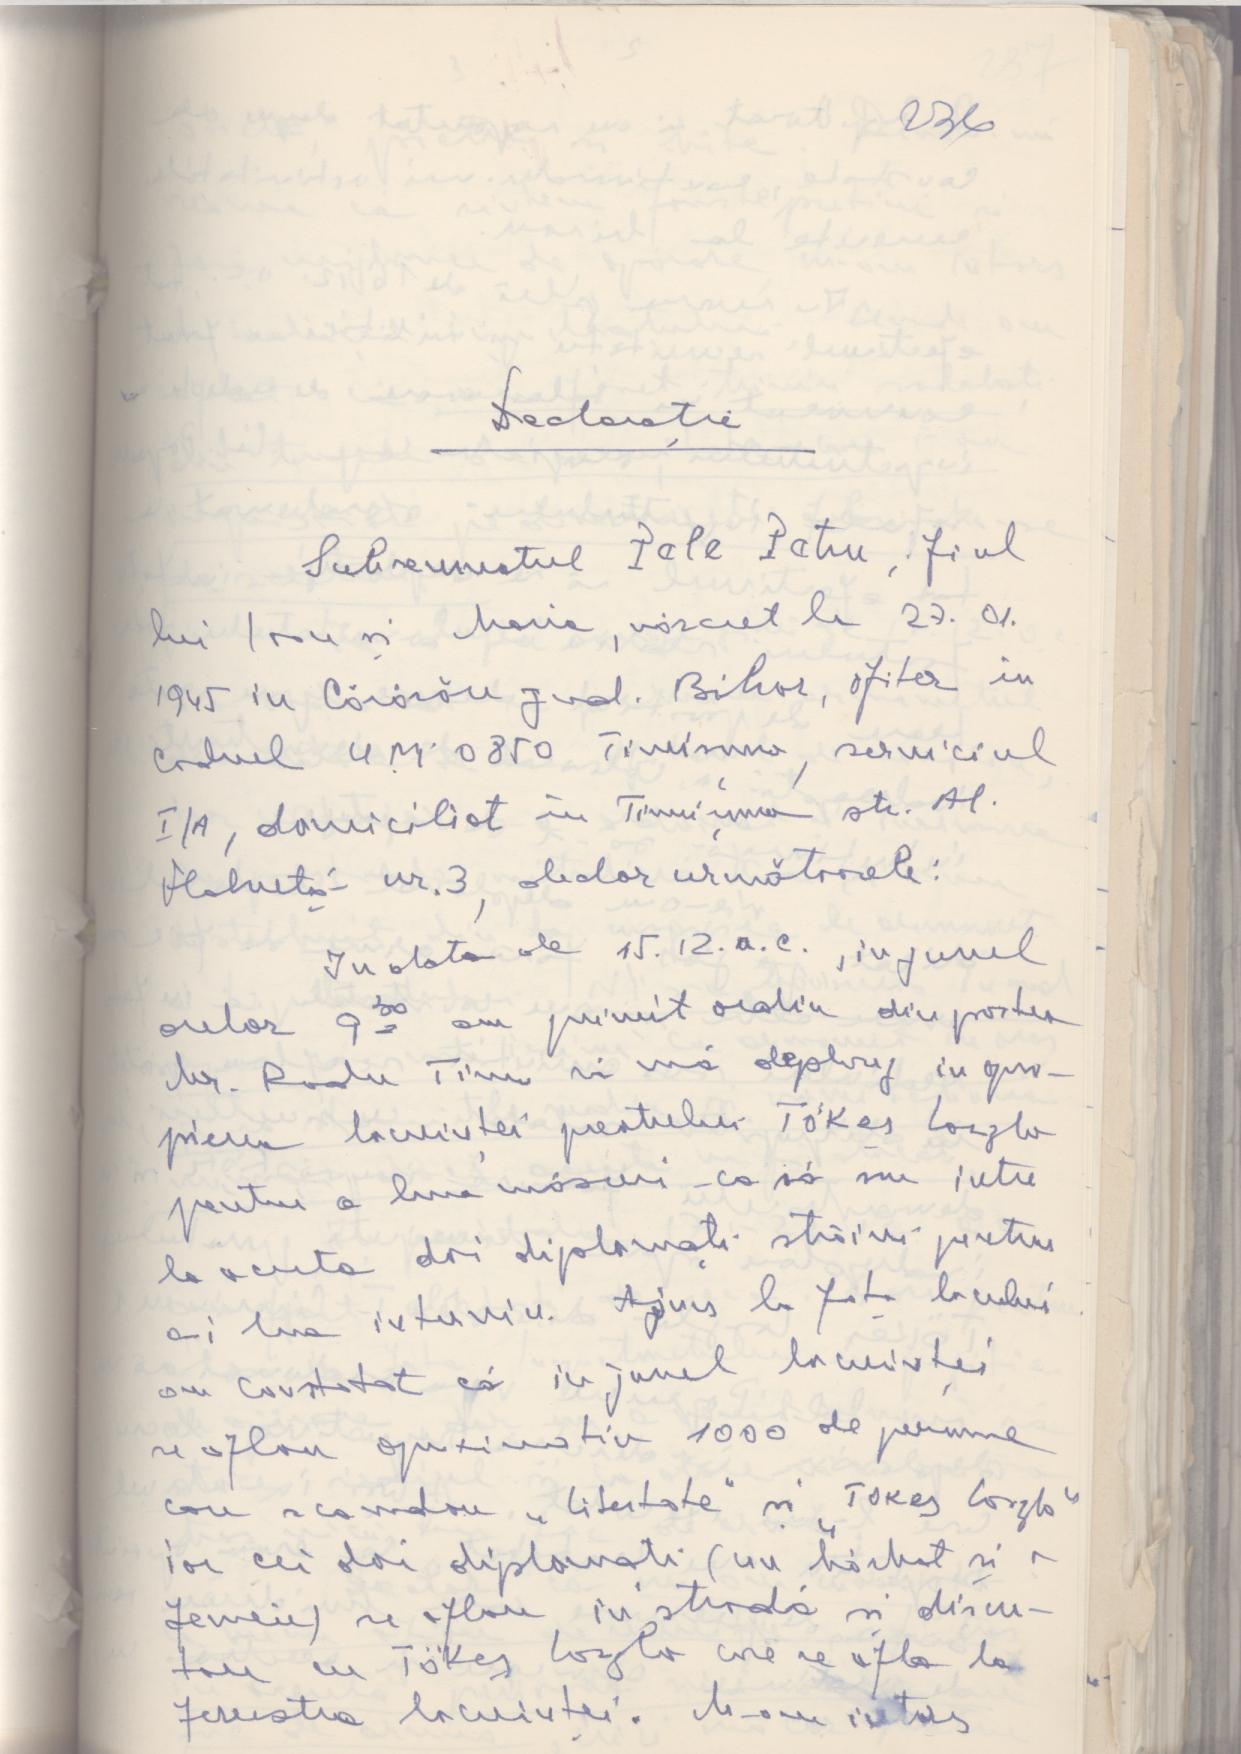 236
Declarație
Subsemnatul Pele Petru, fiul
lui Ioan și Maria, născut la 27. 01.
1945 in jud. Bihor, ofiter in
cadrul U.M. 0850 Timișoara, serviciul
I/A, domiciliat in Timișoara str. Al.
nr. 3, declar următoarele:
In data de 15. 12. a.c., in jurul
orelor 9 30 am primit ordin din partea
Mr. Radu Tinu să mă deplasez in apro-
pierea locuinței preotului Tökes Laszlo
pentru a lua măsuri ca să nu intre
la acesta doi diplomați străini pentru
a-i lua interviu. Ajuns la fața locului
am constatat că in jurul locuinței
se aflau aproximativ 1000 de persoane
care scandau „libertate" și „Tökes Laszlo"
iar cei doi diplomați (un bărbat și o
femeie) se aflau in stradă și discu-
tau cu Tökes Laszlo care se afla la
fereastra locuinței. M-am intors